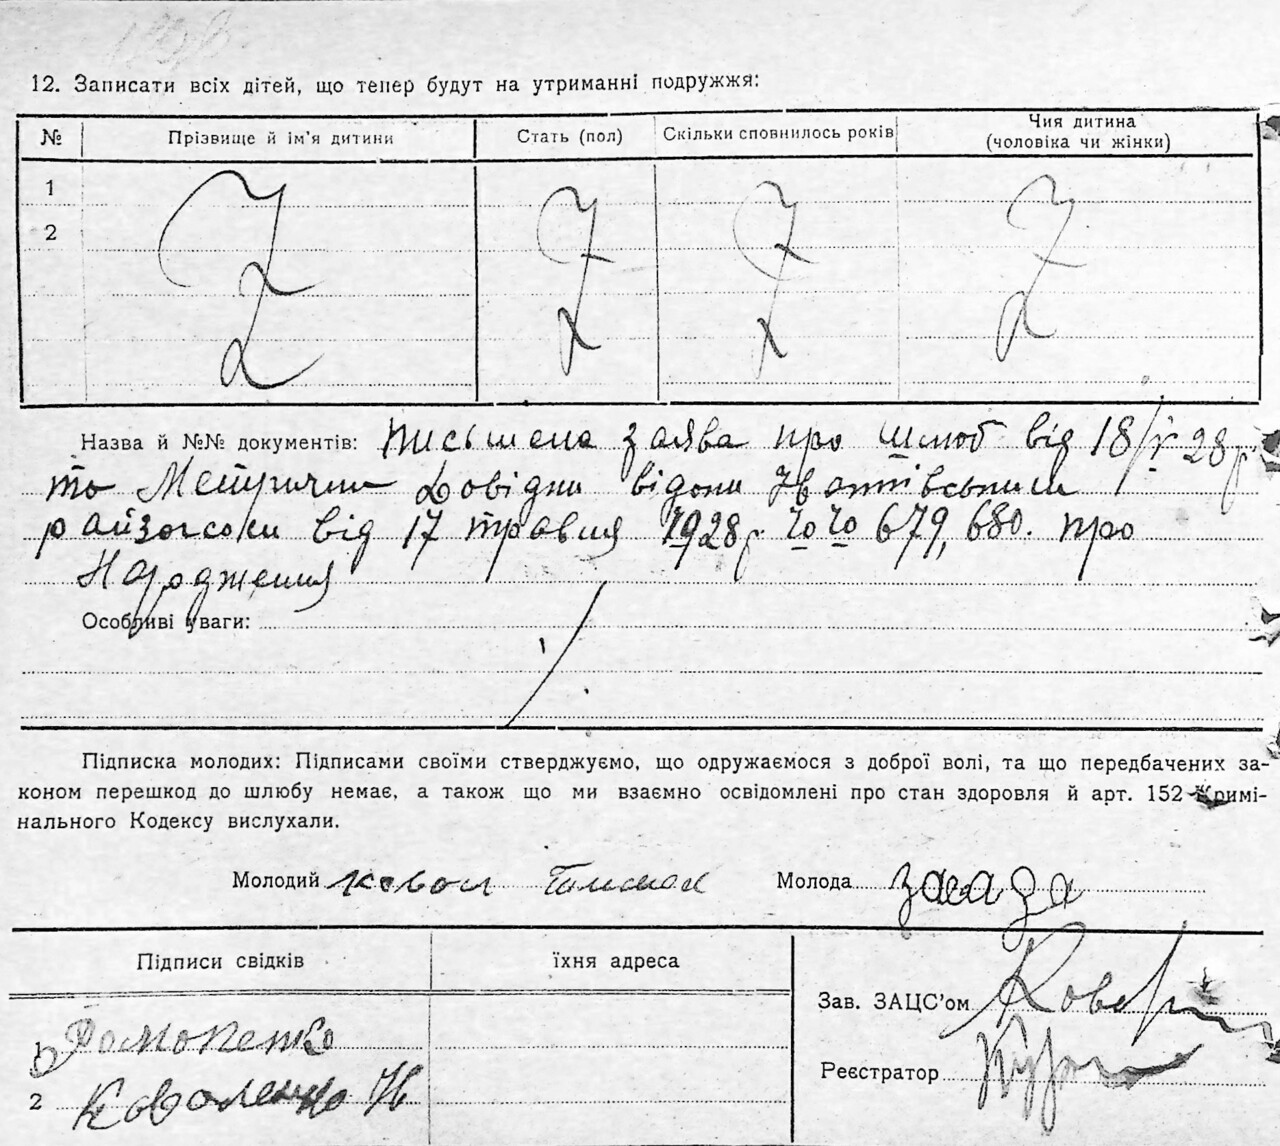 12. Записати всіх дітей, що тепер будут на утриманні подружжя:
№ Прізвище й ім'я дитини Стать (пол) Скільки сповнилось років Чия дитина (чоловіка чи жінки)
1
2
Назва й №№ документів: письмена заява про шлюб від 18/V 28р
та Метрични Довідки
райзагсом від 17 травня 1928р. №№ 679, 680. про
Народження
Особливі уваги:
Підписка молодих: Підписами своїми стверджуємо, що одружаємося з доброї волі, та що передбачених за-
коном перешкод до шлюбу немає, а також що ми взаємно освідомлені про стан здоровля й арт. 152 Кримі-
нального Кодексу вислухали.
Молодий Молода
Підписи свідків їхня адреса
Зав. ЗАЦС'ом
Реєстратор
1
2 Коваленко